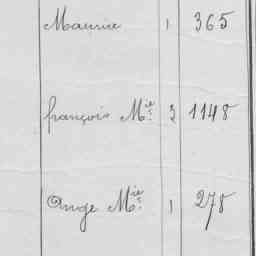 Maurice 1 365
françois M.ie 3 1148
Ange M.ie 1 278